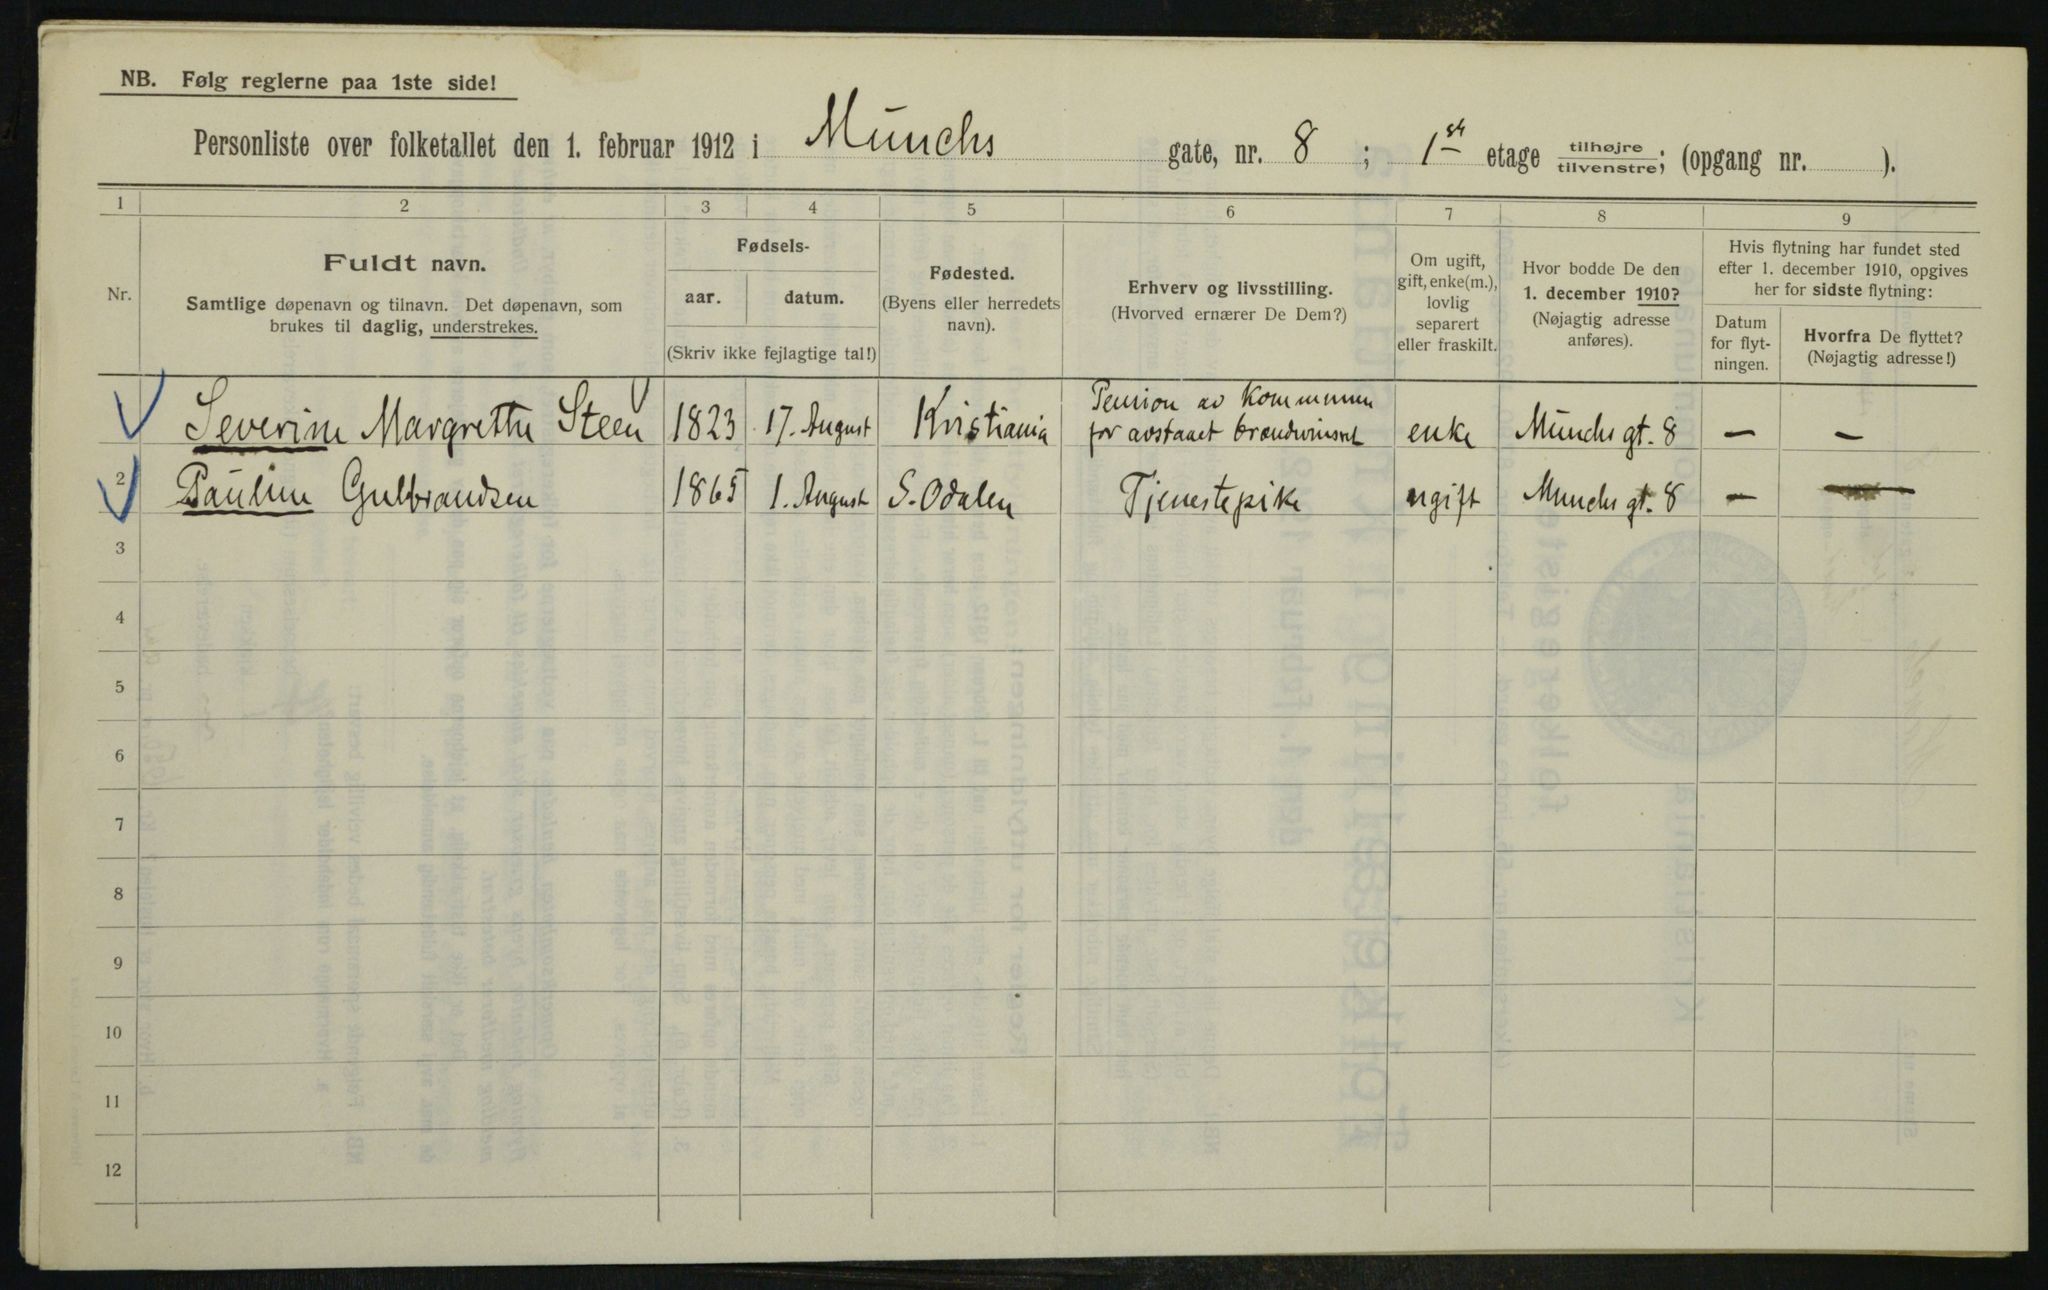 NB. Følg reglerne paa 1ste side!
Personliste over folketallet den 1. februar 1912 i Münchs gate, nr. 8 ; 1st etage tilhøjre tilvenstre; (opgang nr. ).
1 2 3 4 5 6 7 8 9
Nr.
Fuldt navn.
Samtlige døpenavn og tilnavn. Det døpenavn, som
brukes til daglig, understrekes.
Fødsels-
aar. datum.
(Skriv ikke fejlagtige tal!)
Fødested.
(Byens eller herredets
navn).
Erhverv og livsstilling.
(Hvorved ernærer De Dem?)
Om ugift,
gift, enke(m.),
lovlig
separert
eller fraskilt.
Hvor bodde De den
1. december 1910?
(Nøjagtig adresse
anføres).
Hvis flytning har fundet sted
efter 1. december 1910, opgives
her for sidste flytning:
Datum
for flyt-
ningen.
Hvorfra De flyttet?
(Nøjagtig adresse!)
Severine Margrethe Steen 1823 17. August Kristiania Pension av Kommunen
for avstaaet brændevinsret enke Münchs gt. 8 — —
2 Pauline Gulbrandsen 1865 1. August S. Odalen Tjenestepike ugift Munchs gt. 8 — —
3
4
5
6
7
8
9
10
11
12